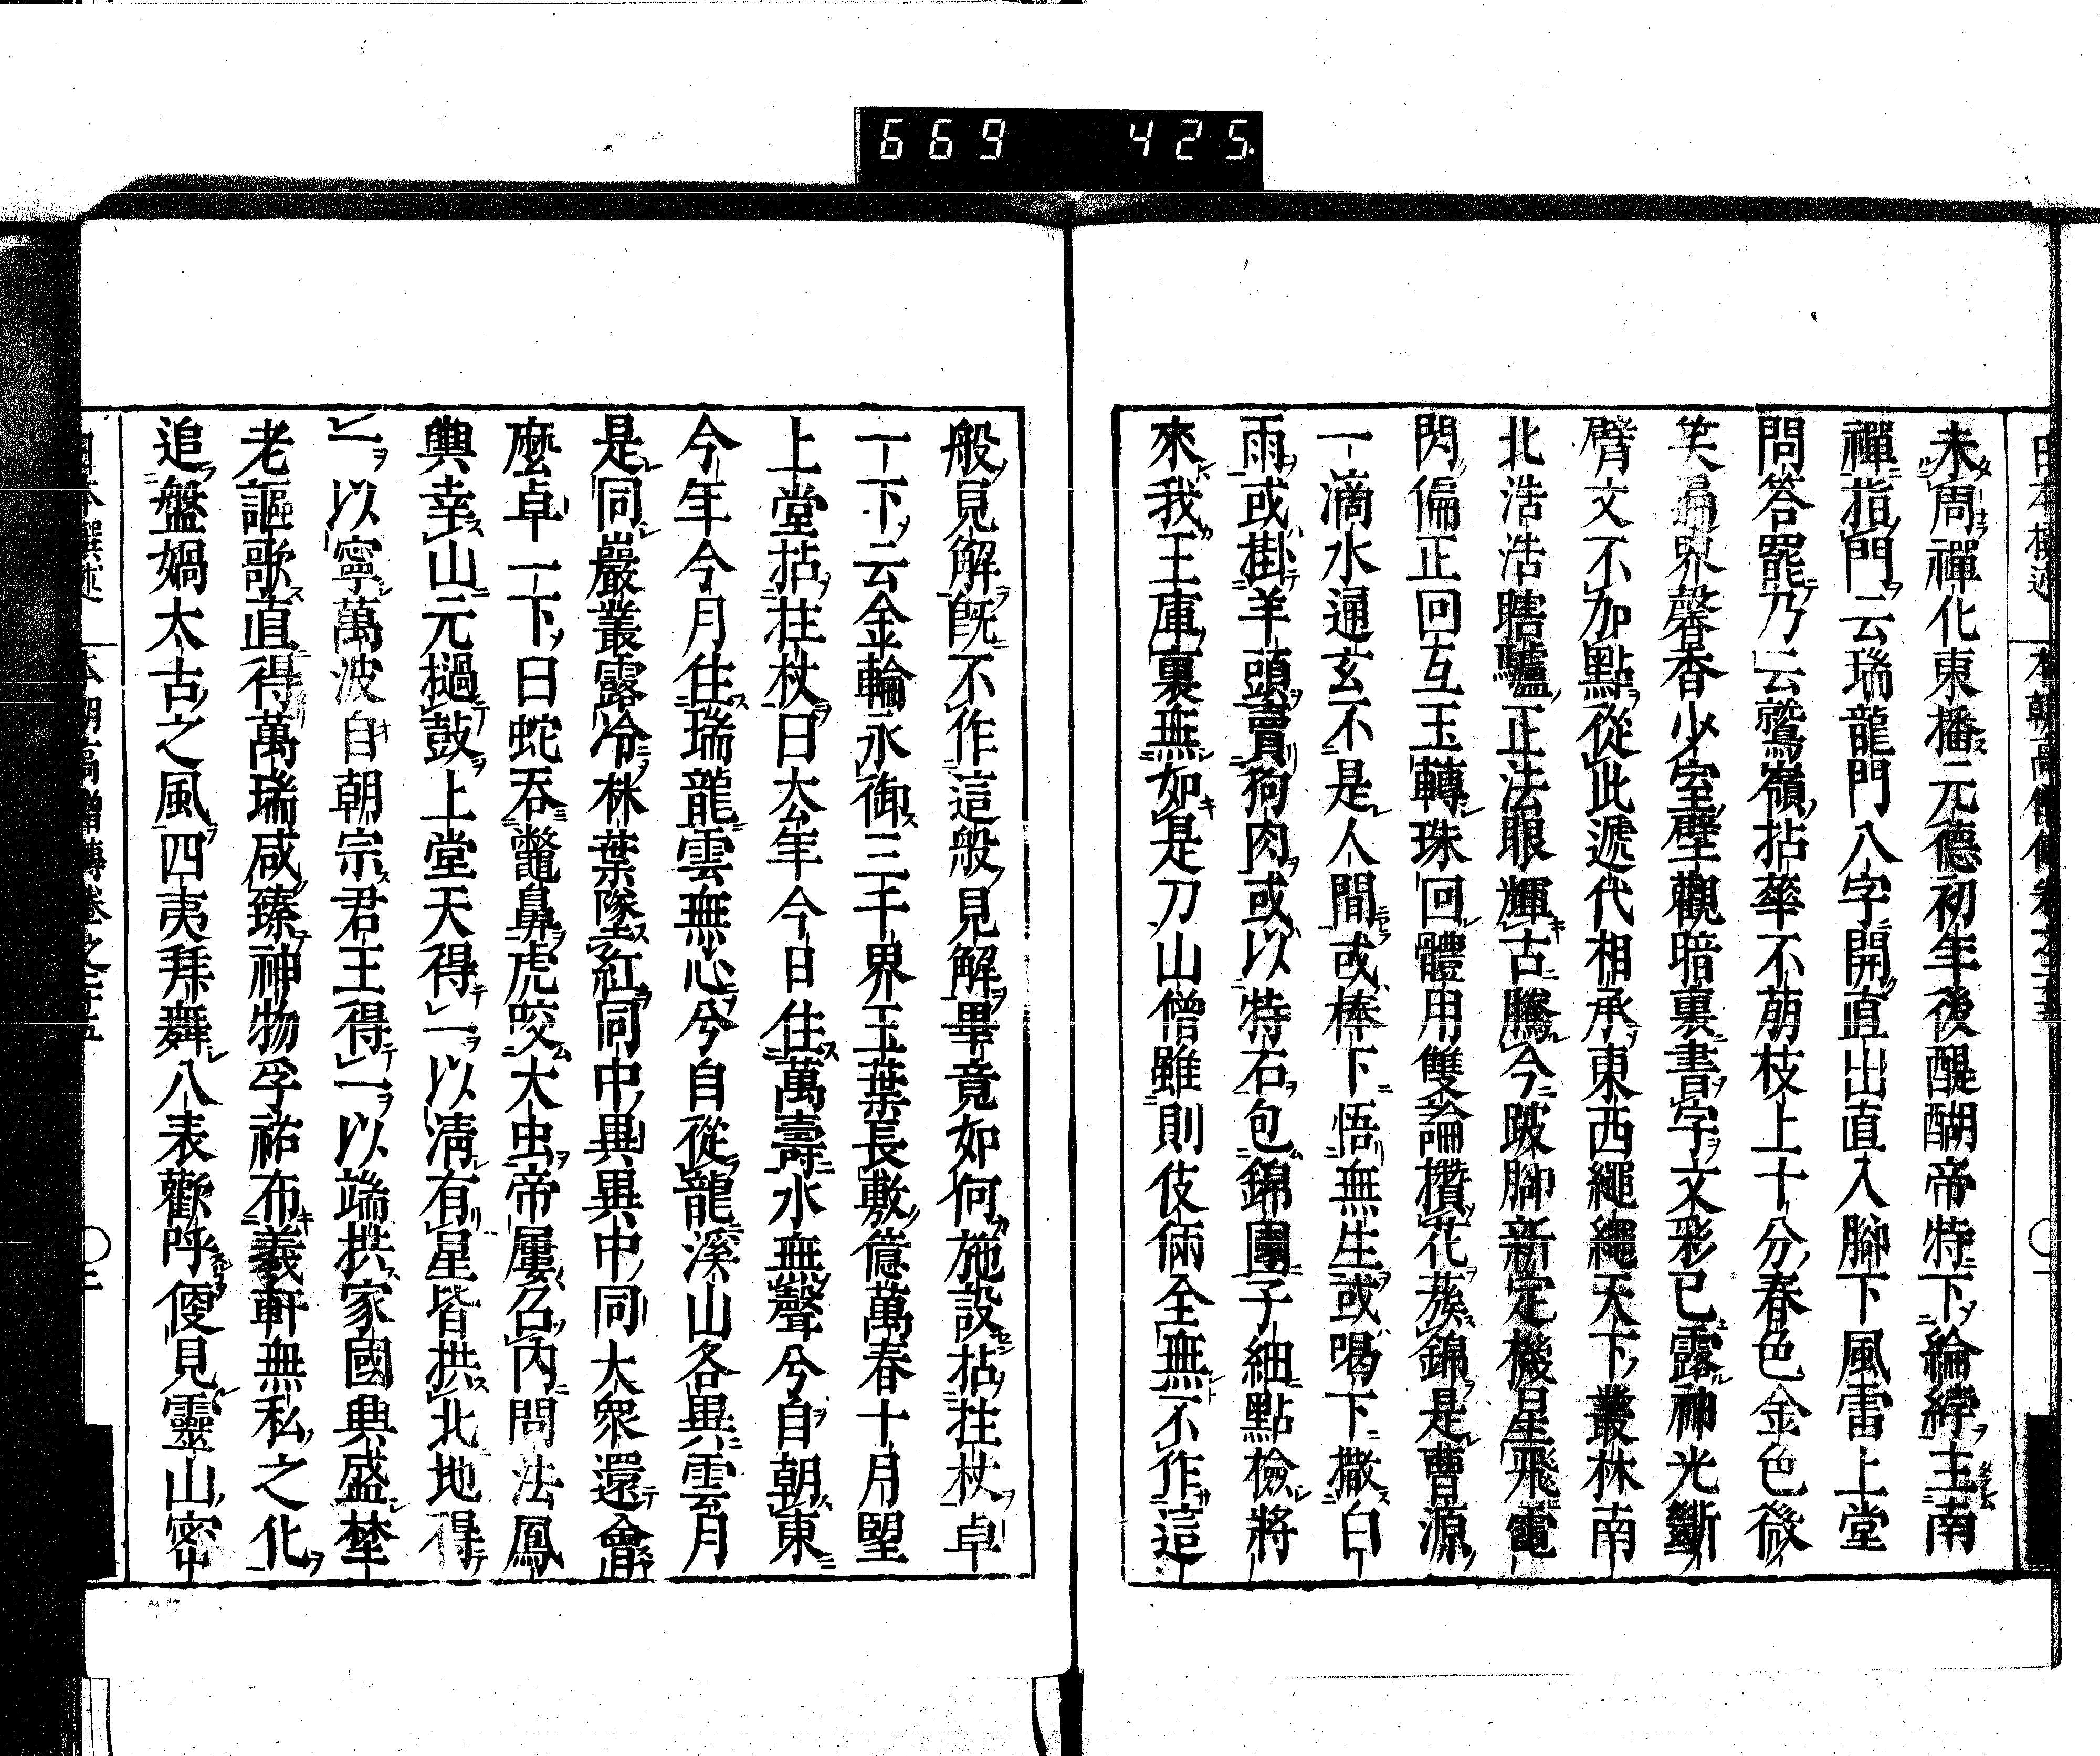 669 425
未周禪化東播元德初年後醍醐帝特下綸綍主南
禪指門云瑞龍門八字開直出直入腳下風雷上堂
問答罷乃云鷲嶺拈華不萠枝上十分春色金色微
笑遍界馨香少室壁觀暗裏書字文彩已露神光斷
臂文不加點從此遞代相承東西繩繩天下叢林南
北浩浩瞎驢正法眼輝古騰今跛腳新定機星飛電
閃偏正回互玉轉珠回體用雙論攢花蔟錦是曹源
一滴水通玄不是人間或棒下悟無生或喝下撒白
雨或掛羊頭賣狗肉或以特石包錦團子細點檢將
來我王庫裏無如是刀山僧雖則伎倆全無不作這
般見解旣不作這般見解畢竟如何施設拈拄杖卓
一下云金輪永御三千界玉葉長敷億萬春十月朢
上堂拈拄杖曰去年今日住萬壽水無聲兮自朝東
今年今月住瑞龍雲無心兮自從龍溪山各異雲月
是同巖叢露冷林葉墜紅同中異異中同大衆還會
麼卓一下曰蛇吞鼈鼻虎咬大虫帝屢召內問法鳳
輿幸山元撾鼓上堂天得一以淸有星皆拱北地得
一以寧萬波自朝宗君王得一以端拱家國興盛埜
老謳歌直得萬瑞咸臻神物孚祐布羲軒無私之化
追盤媧太古之風四夷拜舞八表歡呼儍見靈山密
日本撰述 本朝高僧傳卷之二十五 二